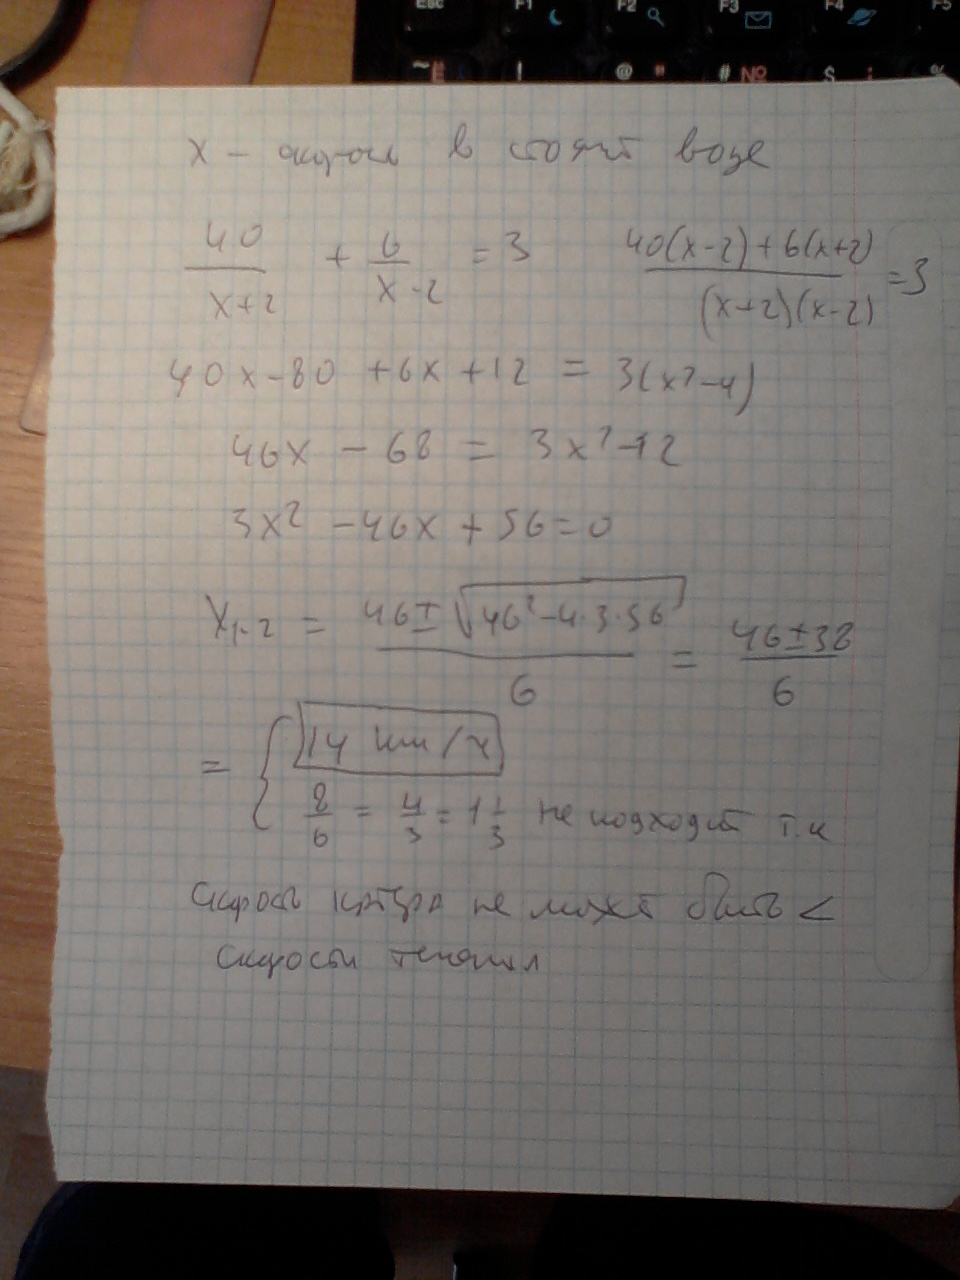 Esc F1 F2 F3 F4 F5
~ Ё ! @ " # № $ ; %
x – скрость в стоячт воде
40/(x+2) + 6/(x-2) = 3 (40(x-2)+6(x+2))/((x+2)(x-2)) = 3
40x-80 +6x+12 = 3(x²-4)
46x - 68 = 3x²-12
3x² -46x + 56=0
x₁,₂ = (46±√(46²-4·3·56))/6 = (46±38)/6
= { 14 км/ч
8/6 = 4/3 = 1 1/3 не подходит т.к
скрость катера не может быть <
скорости течения